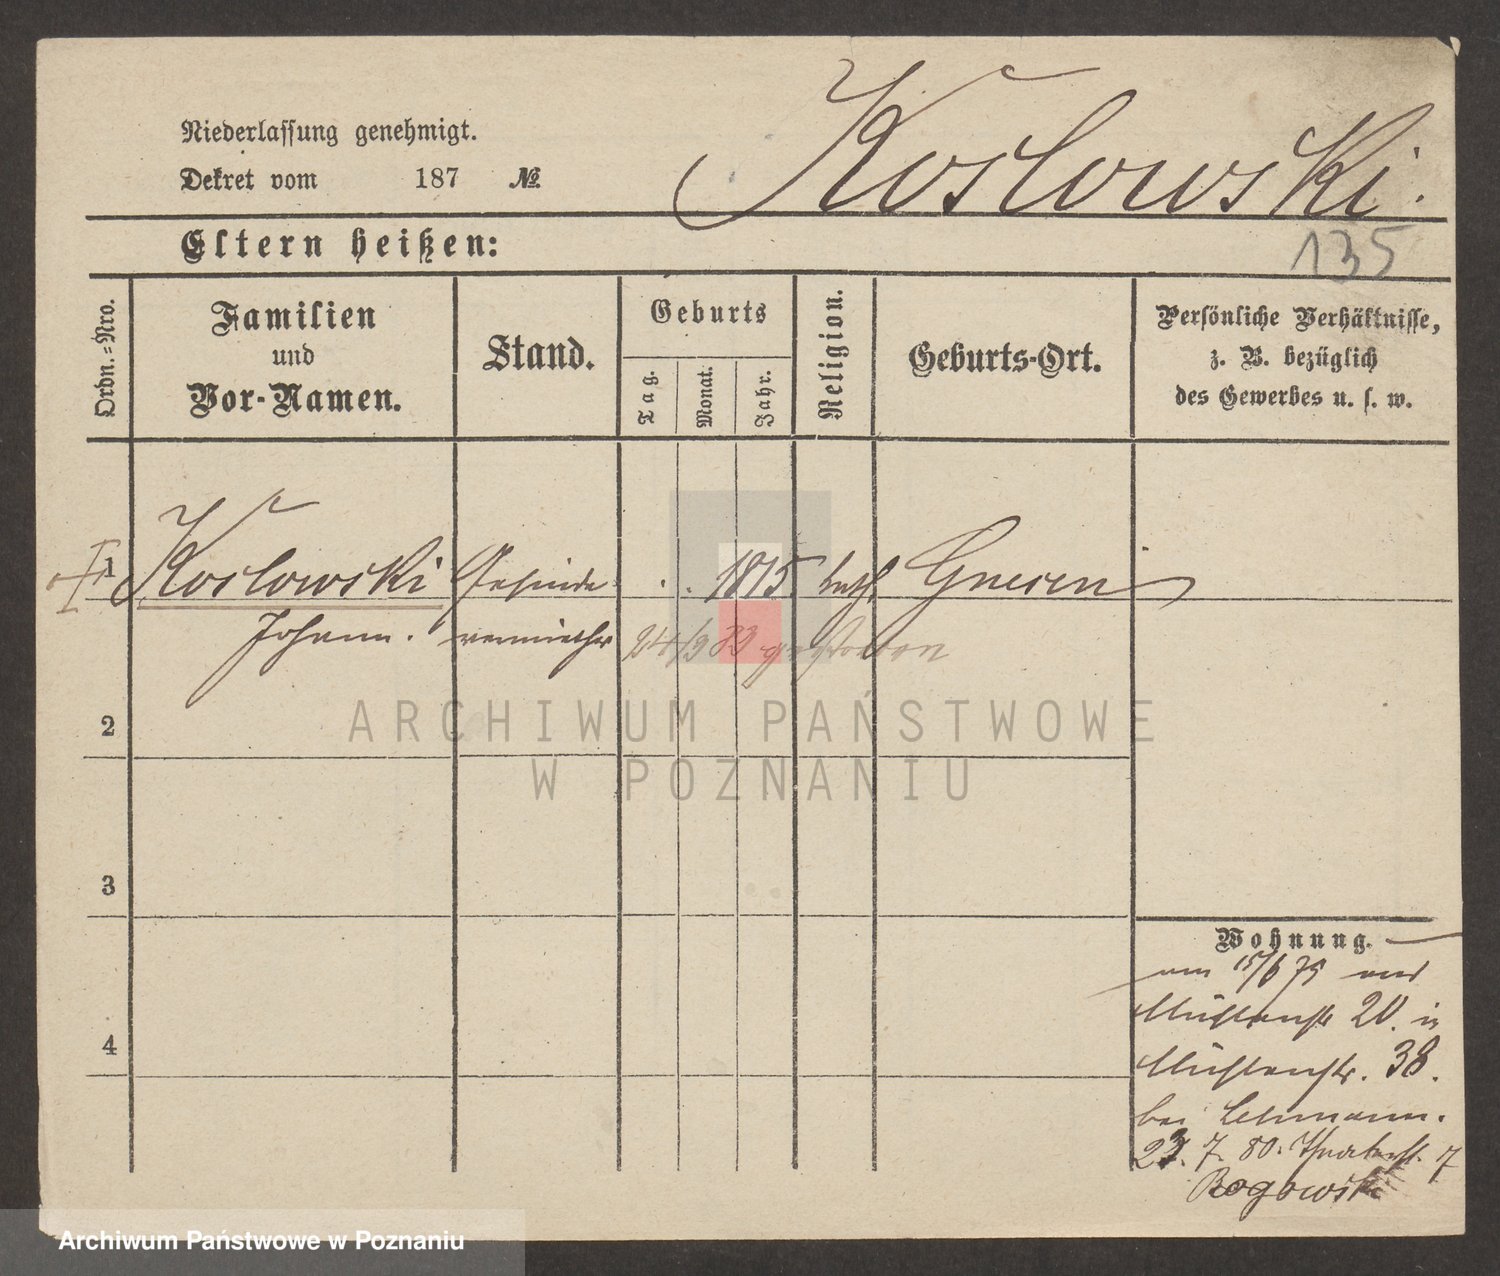 Koslowski.
Niederlassung genehmigt.
Dekret vom 187 №
135
Eltern heißen:
Ordn.=Nro.
Familien
und
Vor-Namen.
Stand.
Geburts
Tag.
Monat.
Jahr.
Religion.
Geburts-Ort.
Persönliche Verhältnisse,
z. B. bezüglich
des Gewerbes u. s. w.
1 Koslowski Gesinde . . 1815 kath Gnesen
Johann. vermiether 24/9 83 gestorben
2
ARCHIWUM PAŃSTWOWE
W POZNANIU
3
Wohnung.
am 15/6 79 aus
Mühlenstr 20. in
4
Mühlenstr. 38.
bei Lehmann.
23. 7. 80. 7
Rogowski
Archiwum Państwowe w Poznaniu